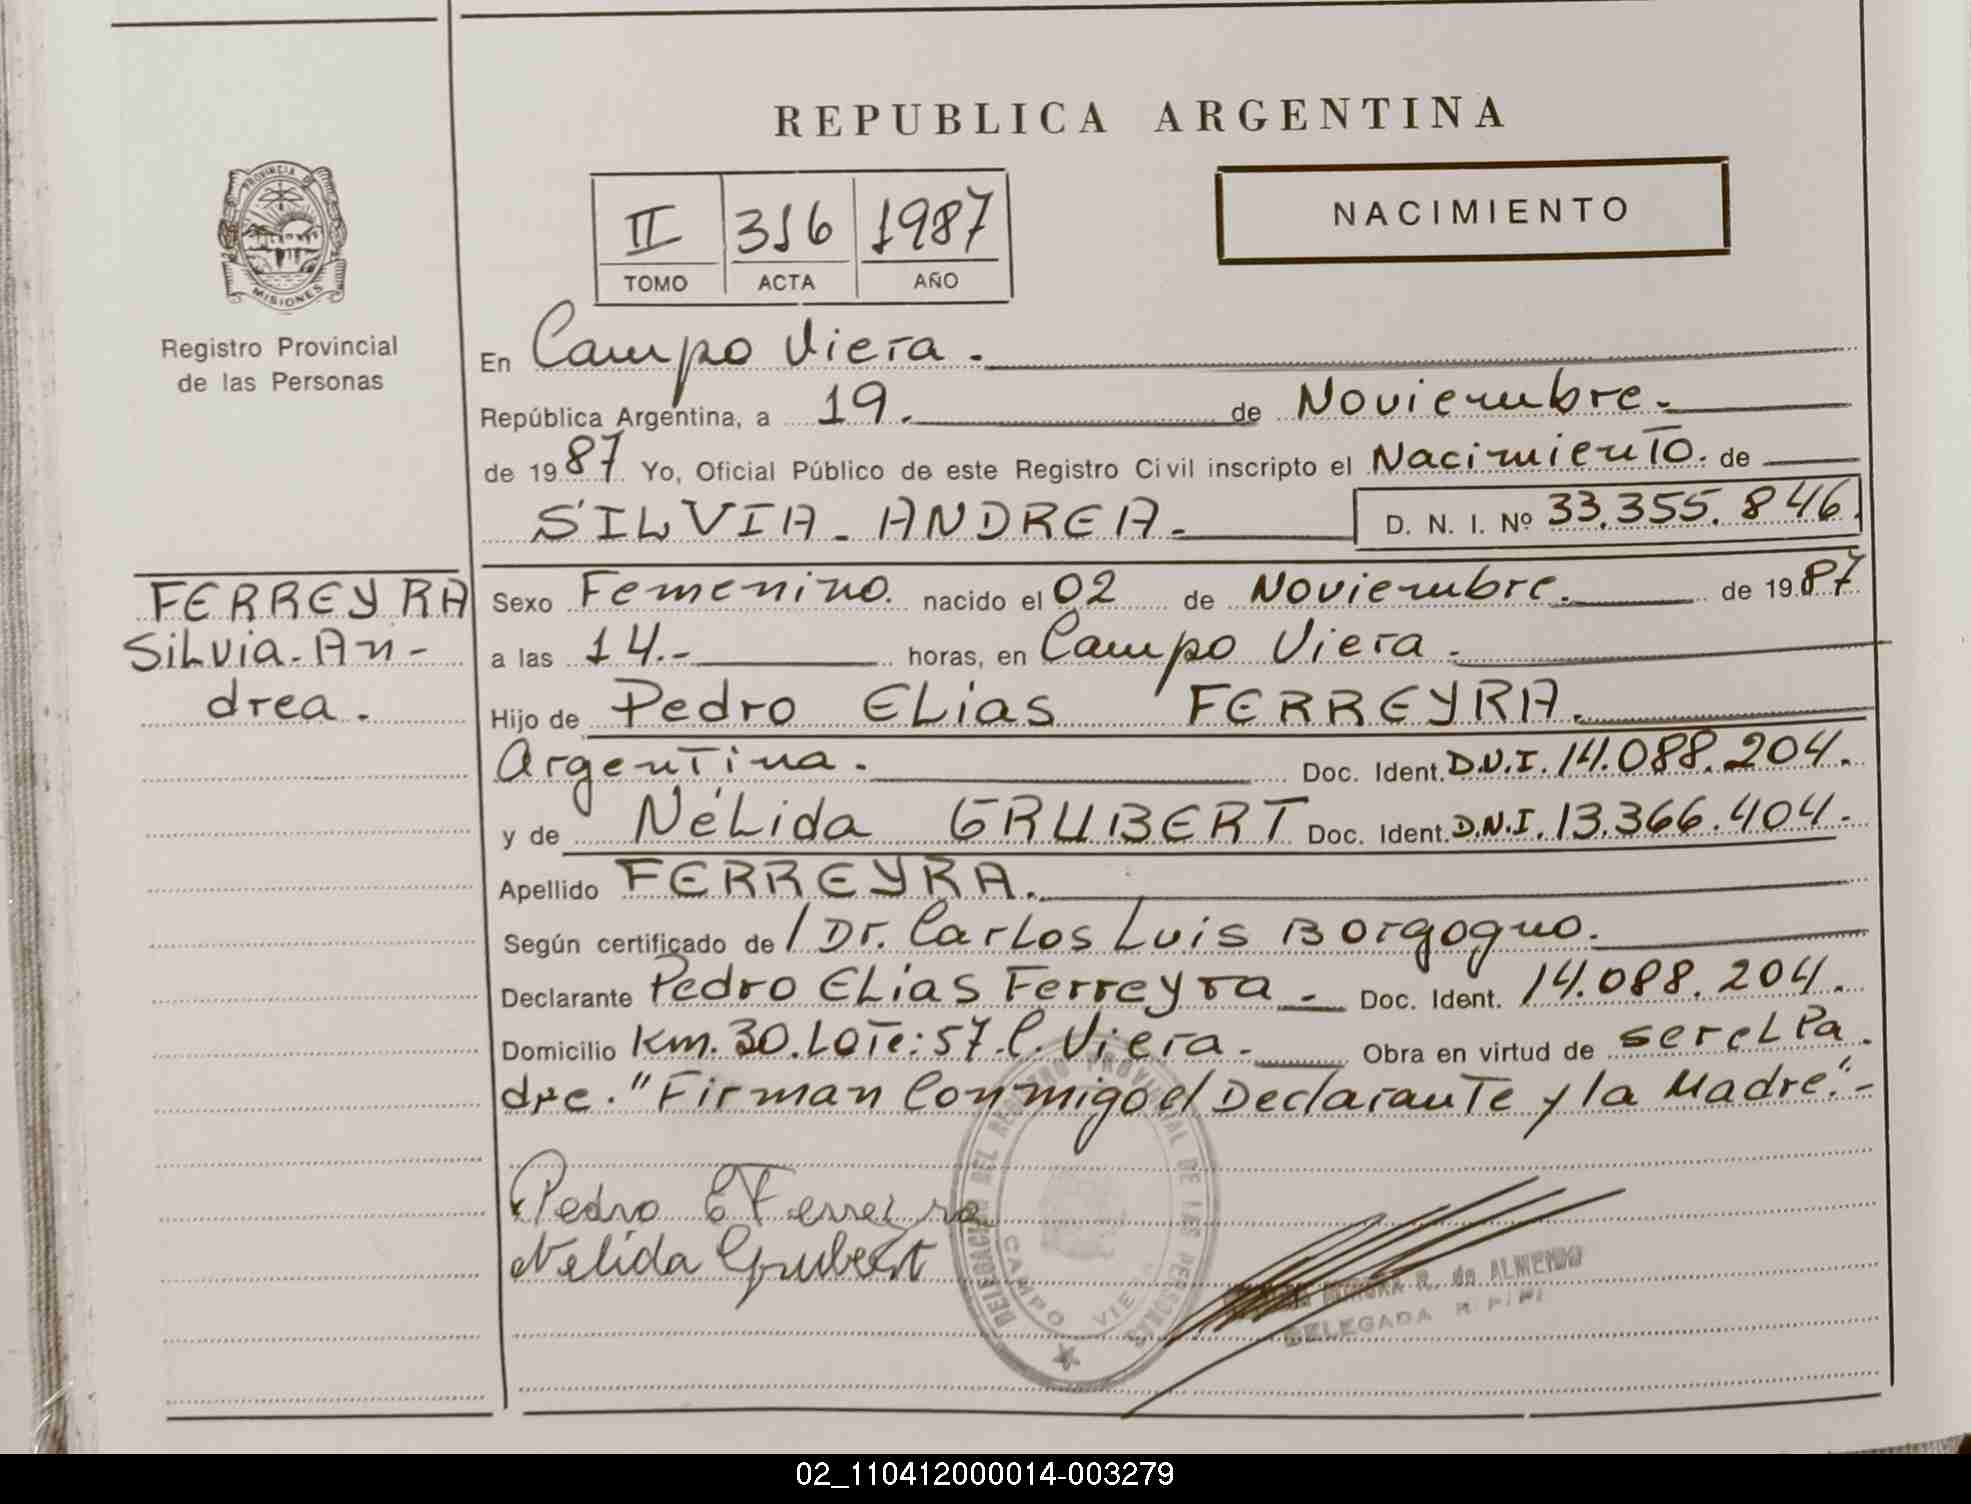 REPUBLICA ARGENTINA
PROVINCIA DE
MISIONES
Registro Provincial
de las Personas
II 316 1987
TOMO ACTA AÑO
NACIMIENTO
En Campo Viera.
República Argentina, a 19. de Noviembre.
de 1987 Yo, Oficial Público de este Registro Civil inscripto el Nacimiento. de
SILVIA - ANDREA.- D. N. I. Nº 33.355.846.
FERREYRA
Silvia-An-
drea.
Sexo Femenino. nacido el 02 de Noviembre. de 1987
a las 14.- horas, en Campo Viera.
Hijo de Pedro Elias FERREYRA.
Argentina. Doc. Ident. D.N.I. 14.088.204.
y de Nélida GRUBERT Doc. Ident. D.N.I. 13.366.404.
Apellido FERREYRA.
Según certificado de / Dr. Carlos Luis Borgogno.
Declarante Pedro Elias Ferreyra - Doc. Ident. 14.088.204.
Domicilio Km. 30. Lote: 57. C. Viera. Obra en virtud de ser el Pa.
dre. "Firman Conmigo el Declarante y la Madre".-
Pedro E Ferreira
Nelida Grubert
DELEGACION DEL REGISTRO PROVINCIAL DE LAS PERSONAS
CAMPO VIERA
R. de ALMENDO
DELEGADA
02_110412000014-003279